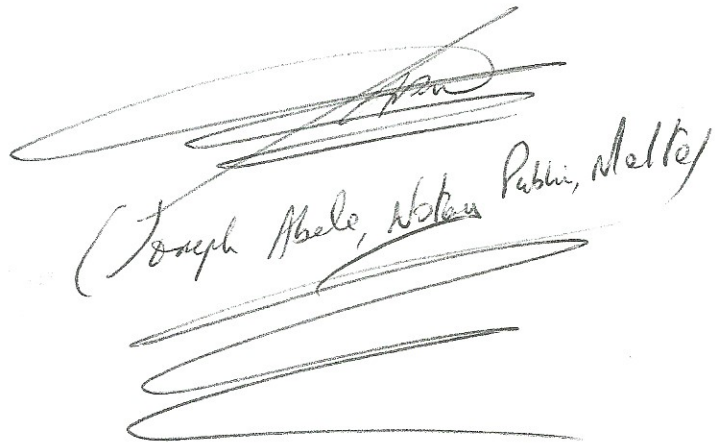 (Joseph Abela, Notary Public, Malta)